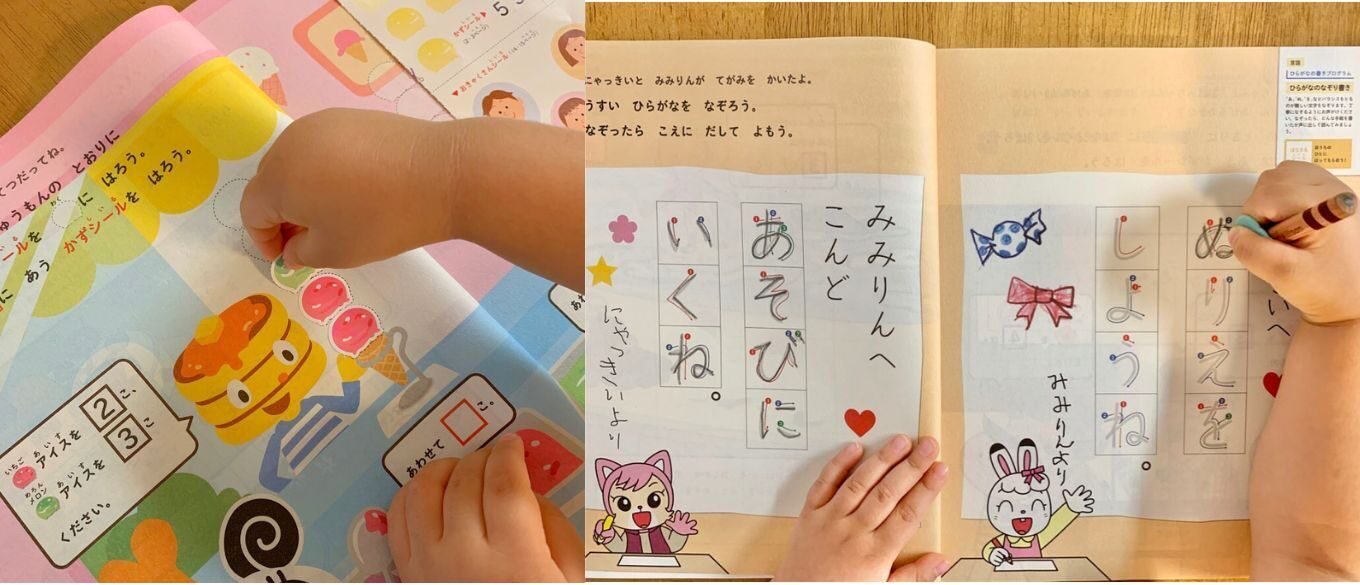 てつだってね。
ゅうもんの とおりに
ールを に はろう。
に あう かずシールを はろう。
かずシール
おきゃくさんシール
いちご あいす
アイスを 2こ、
めろん あいす
メロン アイスを 3こ
ください。
あわせて □こ。
にゃっきいと みみりんが てがみを かいたよ。
うすい ひらがなを なぞろう。
なぞったら こえに だして よもう。
みみりんへ
こんど
あそびに
いくね。
にゃっきいより
言語
ひらがなの書きプログラム
ひらがなのなぞり書き
いへ
ぬりえを
しようね。
みみりんより